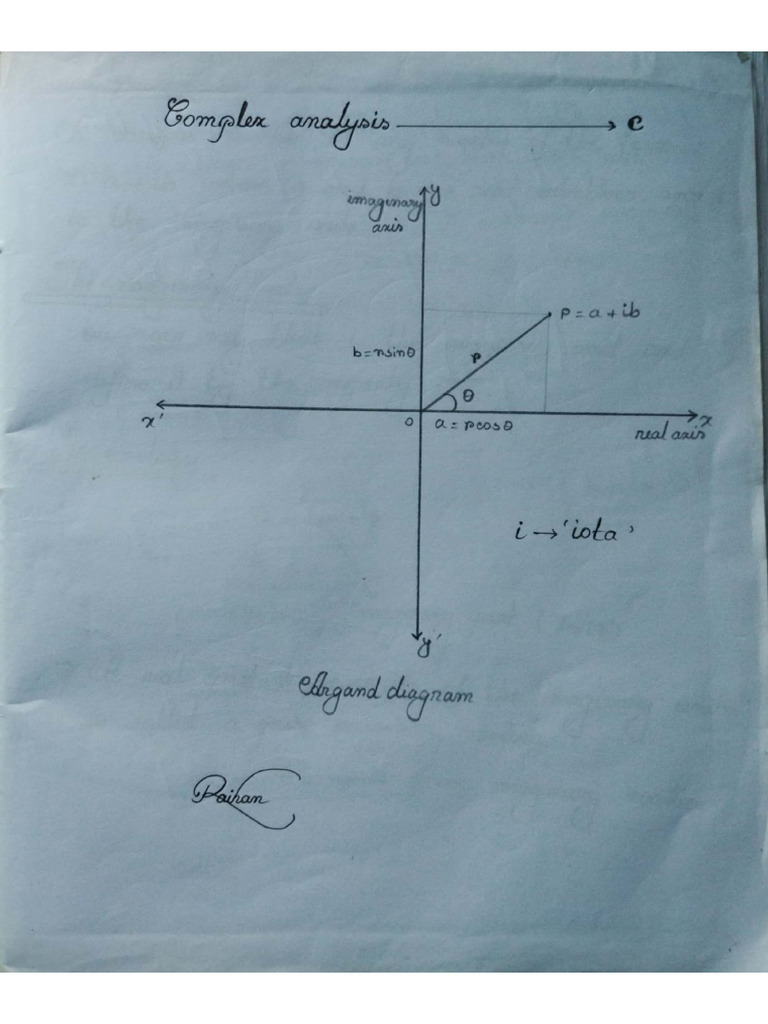 Complex analysis → C
y
imaginary
axis
P = a + ib
b = r sinθ
r
θ
x'
o
a = r cosθ
x
real axis
i → 'iota'
y'
Argand diagram
Raihan